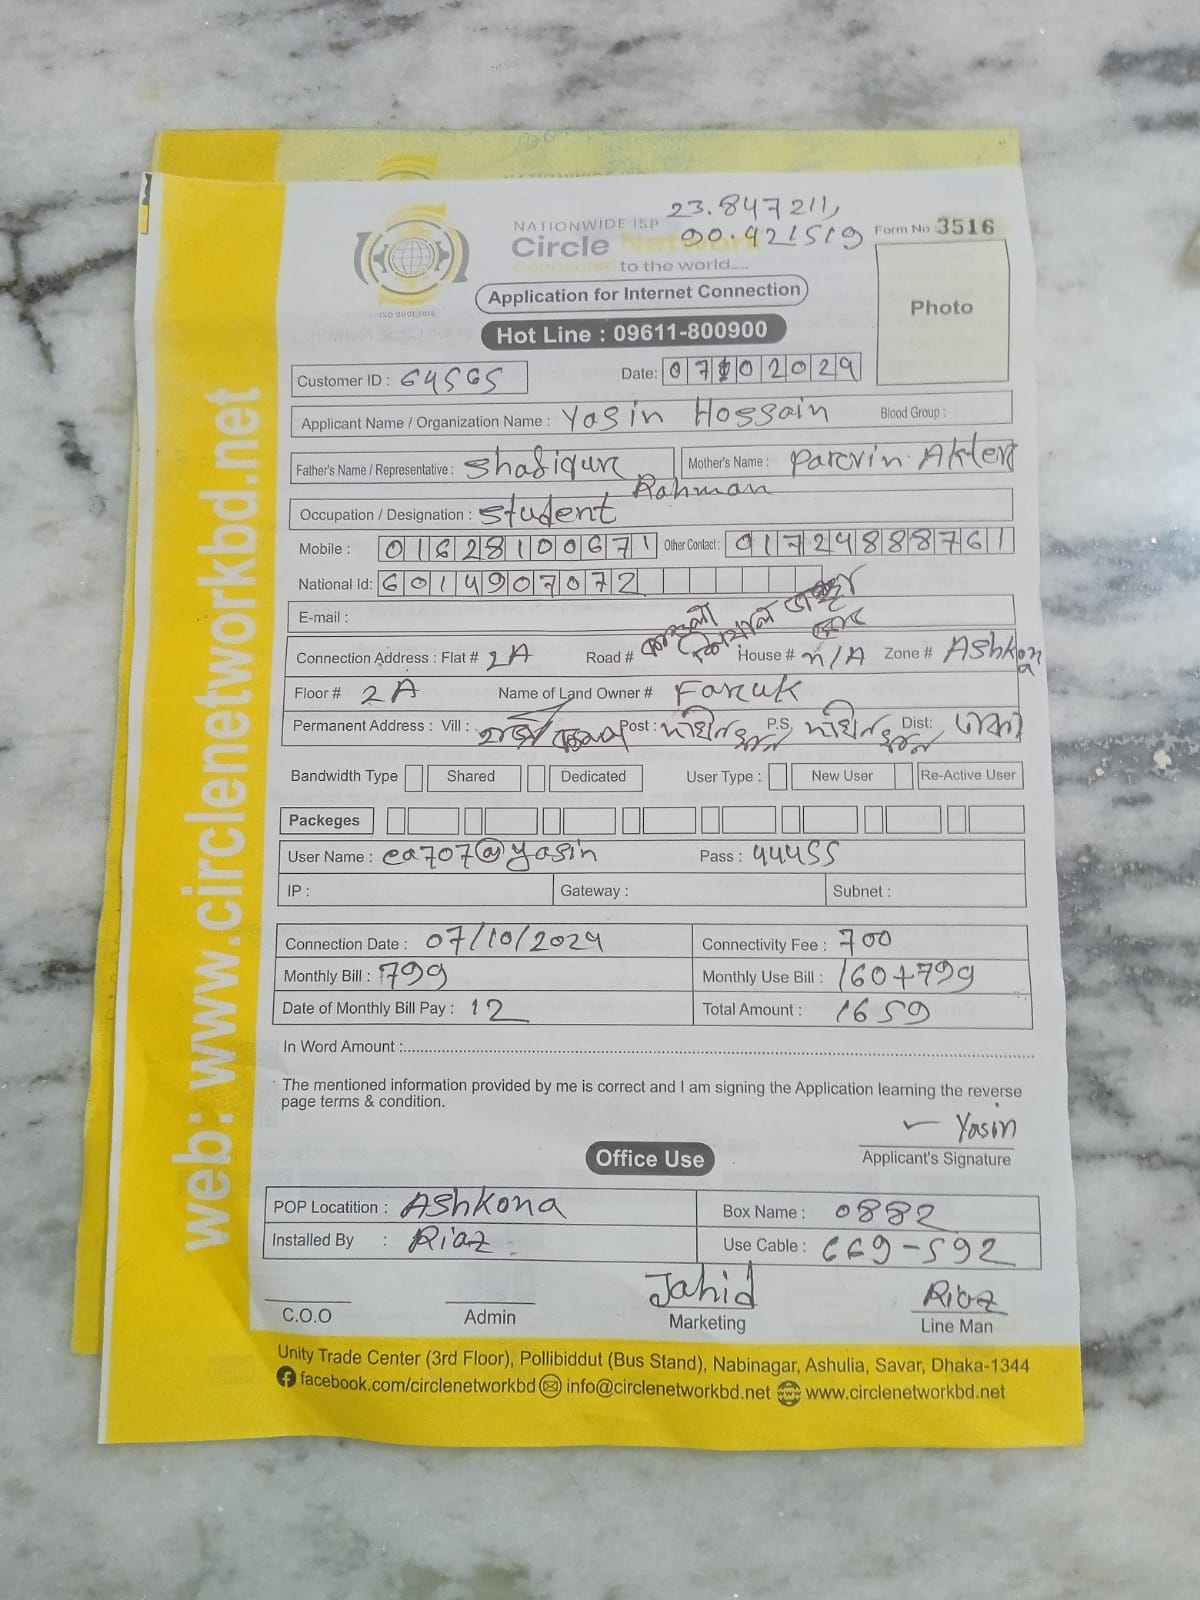 23.847211,
90.421519
NATIONWIDE ISP
Circle Network
Connected to the world.....
Form No 3516
ISO 9001:2015
Application for Internet Connection
Photo
Hot Line : 09611-800900
Customer ID : 64565
Date: 07102024
Applicant Name / Organization Name : Yasin Hossain Blood Group :
Father's Name / Representative : Shafiqur Rahman Mother's Name : Parvin Akter
Occupation / Designation : Student
Mobile : 01628100671 Other Contact : 01724888761
National Id: 6014907072
E-mail :
Connection Address : Flat # 2A Road # House # n/A Zone # Ashkona
Floor # 2A Name of Land Owner # Faruk
Permanent Address : Vill : Post : P.S, Dist: ঢাকা
Bandwidth Type Shared Dedicated User Type : New User Re-Active User
Packeges
User Name : ea707@yasin Pass : 44455
IP : Gateway : Subnet :
Connection Date : 07/10/2024 Connectivity Fee : 700
Monthly Bill : 799 Monthly Use Bill : 160+799
Date of Monthly Bill Pay : 12 Total Amount : 1659
In Word Amount :
The mentioned information provided by me is correct and I am signing the Application learning the reverse
page terms & condition.
Yasin
Applicant's Signature
Office Use
POP Locatition : Ashkona Box Name : 0882
Installed By : Riaz Use Cable : 669-592
Jahid Riaz
C.O.O Admin Marketing Line Man
Unity Trade Center (3rd Floor), Pollibiddut (Bus Stand), Nabinagar, Ashulia, Savar, Dhaka-1344
facebook.com/circlenetworkbd info@circlenetworkbd.net www.circlenetworkbd.net
web: www.circlenetworkbd.net